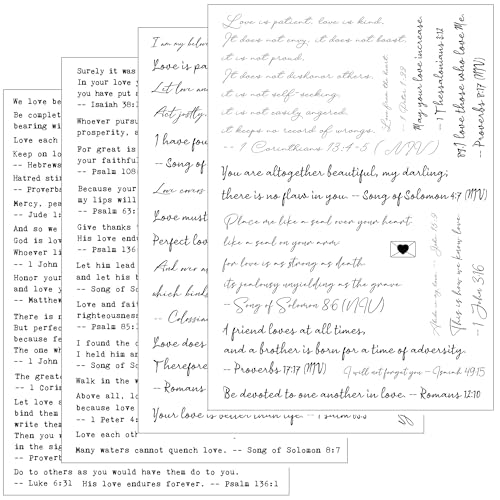 Love is patient, love is kind.
It does not envy, it does not boast,
it is not proud.
It does not dishonor others,
it is not self-seeking,
it is not easily angered,
it keeps no record of wrongs.
-- 1 Corinthians 13:4-5 (NIV)
May your love increase.
-- 1 Thessalonians 3:12
I love those who love Me.
-- Proverbs 8:17 (NIV)
You are altogether beautiful, my darling;
there is no flaw in you. -- Song of Solomon 4:7 (NIV)
Place me like a seal over your heart
like a seal on your arm
for love is as strong as death
its jealousy unyielding as the grave
-- Song of Solomon 8:6 (NIV)
This is how we know love
-- 1 John 3:16
A friend loves at all times,
and a brother is born for a time of adversity.
-- Proverbs 17:17 (NIV)
I will not forget you - Isaiah 49:15
Be devoted to one another in love. -- Romans 12:10
I am my belov
Love is pa
Let love an
Act justly.
I have fou
-- Song of
Love covers
Love must
Perfect lov
And over a
which binds
-- Colossian
Love does
Therefore
-- Romans
Your love is better than life. -- Psalm 63:3
Surely it was
In your love y
you have put a
-- Isaiah 38:
Whoever pursu
prosperity, a
For great is
your faithful
-- Psalm 108:
Because your
my lips will
-- Psalm 63:
Give thanks
His love endu
-- Psalm 136
Let him lead
and let his
-- Song of So
Love and fait
righteousness
-- Psalm 85:
I found the o
I held him an
-- Song of So
Walk in the w
Above all, lo
because love
-- 1 Peter 4:
Love each oth
Many waters cannot quench love. -- Song of Solomon 8:7
We love be
Be complet
bearing wi
Love each
Keep on lo
-- Hebrews
Hatred sti
-- Proverb
Mercy, pea
-- Jude 1:
And so we
God is lov
Whoever li
-- 1 John
Honor your
and love y
-- Matthew
There is n
But perfec
because fe
The one wh
-- 1 John
The greate
-- 1 Corin
Let love a
bind them
write them
Then you w
in the sig
-- Proverb
Do to others as you would have them do to you.
-- Luke 6:31 His love endures forever. -- Psalm 136:1